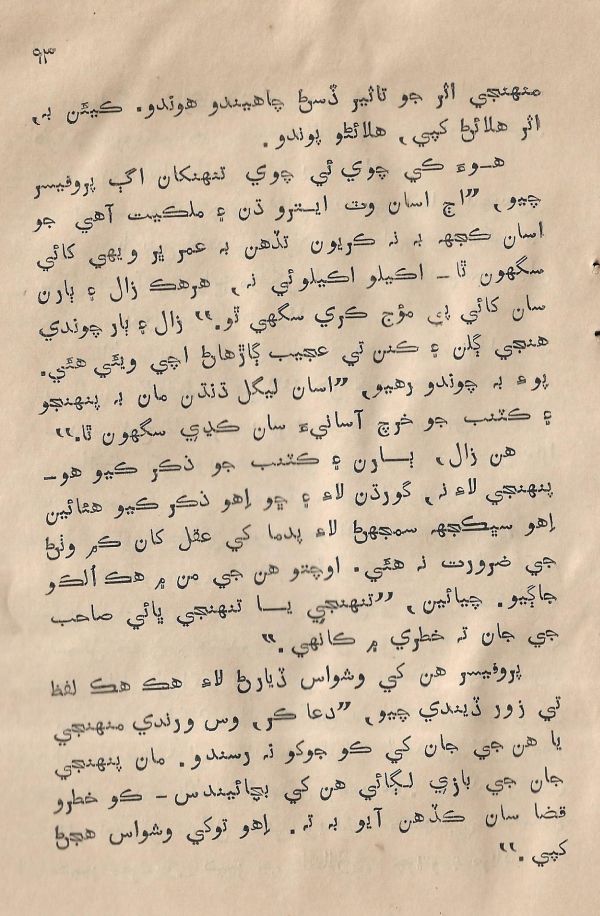 ۹۳
منهنجي اثر جو تاثير ڏسڻ چاهيندو هوندو. ڪيئن به،
اثر هلائڻ کپي، هلائڻو پوندو.
هوءَ ڪي چوي ئي چوي تنهنکان اڳ پروفيسر
چيو، ”اڄ اسان وٽ ايترو ڌن ۽ ملڪيت آهي جو
اسان ڪجهه به نه ڪريون تڏهن به عمر ڀر ويهي کائي
سگهون ٿا – اڪيلو اڪيلوئي نه، هرهڪ زال ۽ ٻارن
سان کائي پي مؤج ڪري سگهي ٿو.“ زال ۽ ٻار چوندي
هنجي ڳلن ۽ ڪنن تي عجيب ڳاڙهاڻ اچي ويئي هئي.
پوءِ به چوندو رهيو، ”اسان ليگل ڌنڌن مان به پنهنجو
۽ ڪٽنب جو خرچ آسانيءَ سان ڪڍي سگهون ٿا.“
هن زال، ٻارن ۽ ڪٽنب جو ذڪر ڪيو هو –
پنهنجي لاءِ نه، گورڌن لاءِ ۽ ڇو اِهو ذڪر ڪيو هئائين
اِهو سڀڪجهه سمجهڻ لاءِ پدما کي عقل کان ڪم وٺڻ
جي ضرورت نه هئي. اوچتو هن جي من ۾ هڪ اُلڪو
جاڳيو. چيائين، ”تنهنجي يا تنهنجي ڀائي صاحب
جي جان ته خطري ۾ ڪانهي.“
پروفيسر هن کي وشواس ڏيارڻ لاءِ هڪ هڪ لفظ
تي زور ڏيندي چيو، ”دعا ڪر، وس ورندي منهنجي
يا هن جي جان کي ڪو جوکو نه رسندو. مان پنهنجي
جان جي بازي لڳائي هن کي بچائيندس – ڪو خطرو
قضا سان ڪڏهن آيو به ته. اِهو توکي وشواس هجڻ
کپي.“